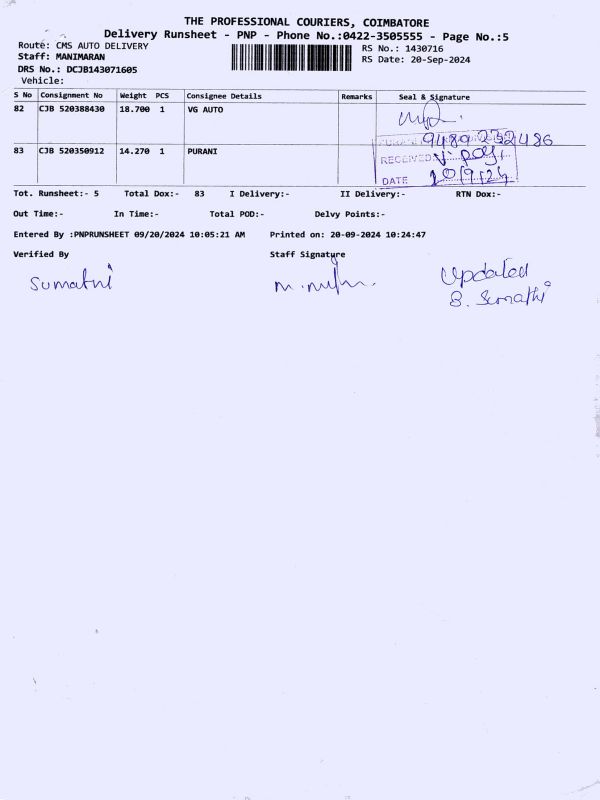 THE PROFESSIONAL COURIERS, COIMBATORE
Delivery Runsheet - PNP - Phone No.:0422-3505555 - Page No.:5
Route: CMS AUTO DELIVERY
RS No.: 1430716
Staff: MANIMARAN
RS Date: 20-Sep-2024
DRS No.: DCJB143071605
Vehicle:
S No Consignment No Weight PCS Consignee Details Remarks Seal & Signature
82 CJB 520388430 18.700 1 VG AUTO
9489232486
83 CJB 520350912 14.270 1 PURANI
RECEIVED
DATE 20/9/24
Tot. Runsheet:- 5 Total Dox:- 83 I Delivery:- II Delivery:- RTN Dox:-
Out Time:- In Time:- Total POD:- Delvy Points:-
Entered By :PNPRUNSHEET 09/20/2024 10:05:21 AM Printed on: 20-09-2024 10:24:47
Verified By Staff Signature
Sumathi
Updated
B. Sumathi